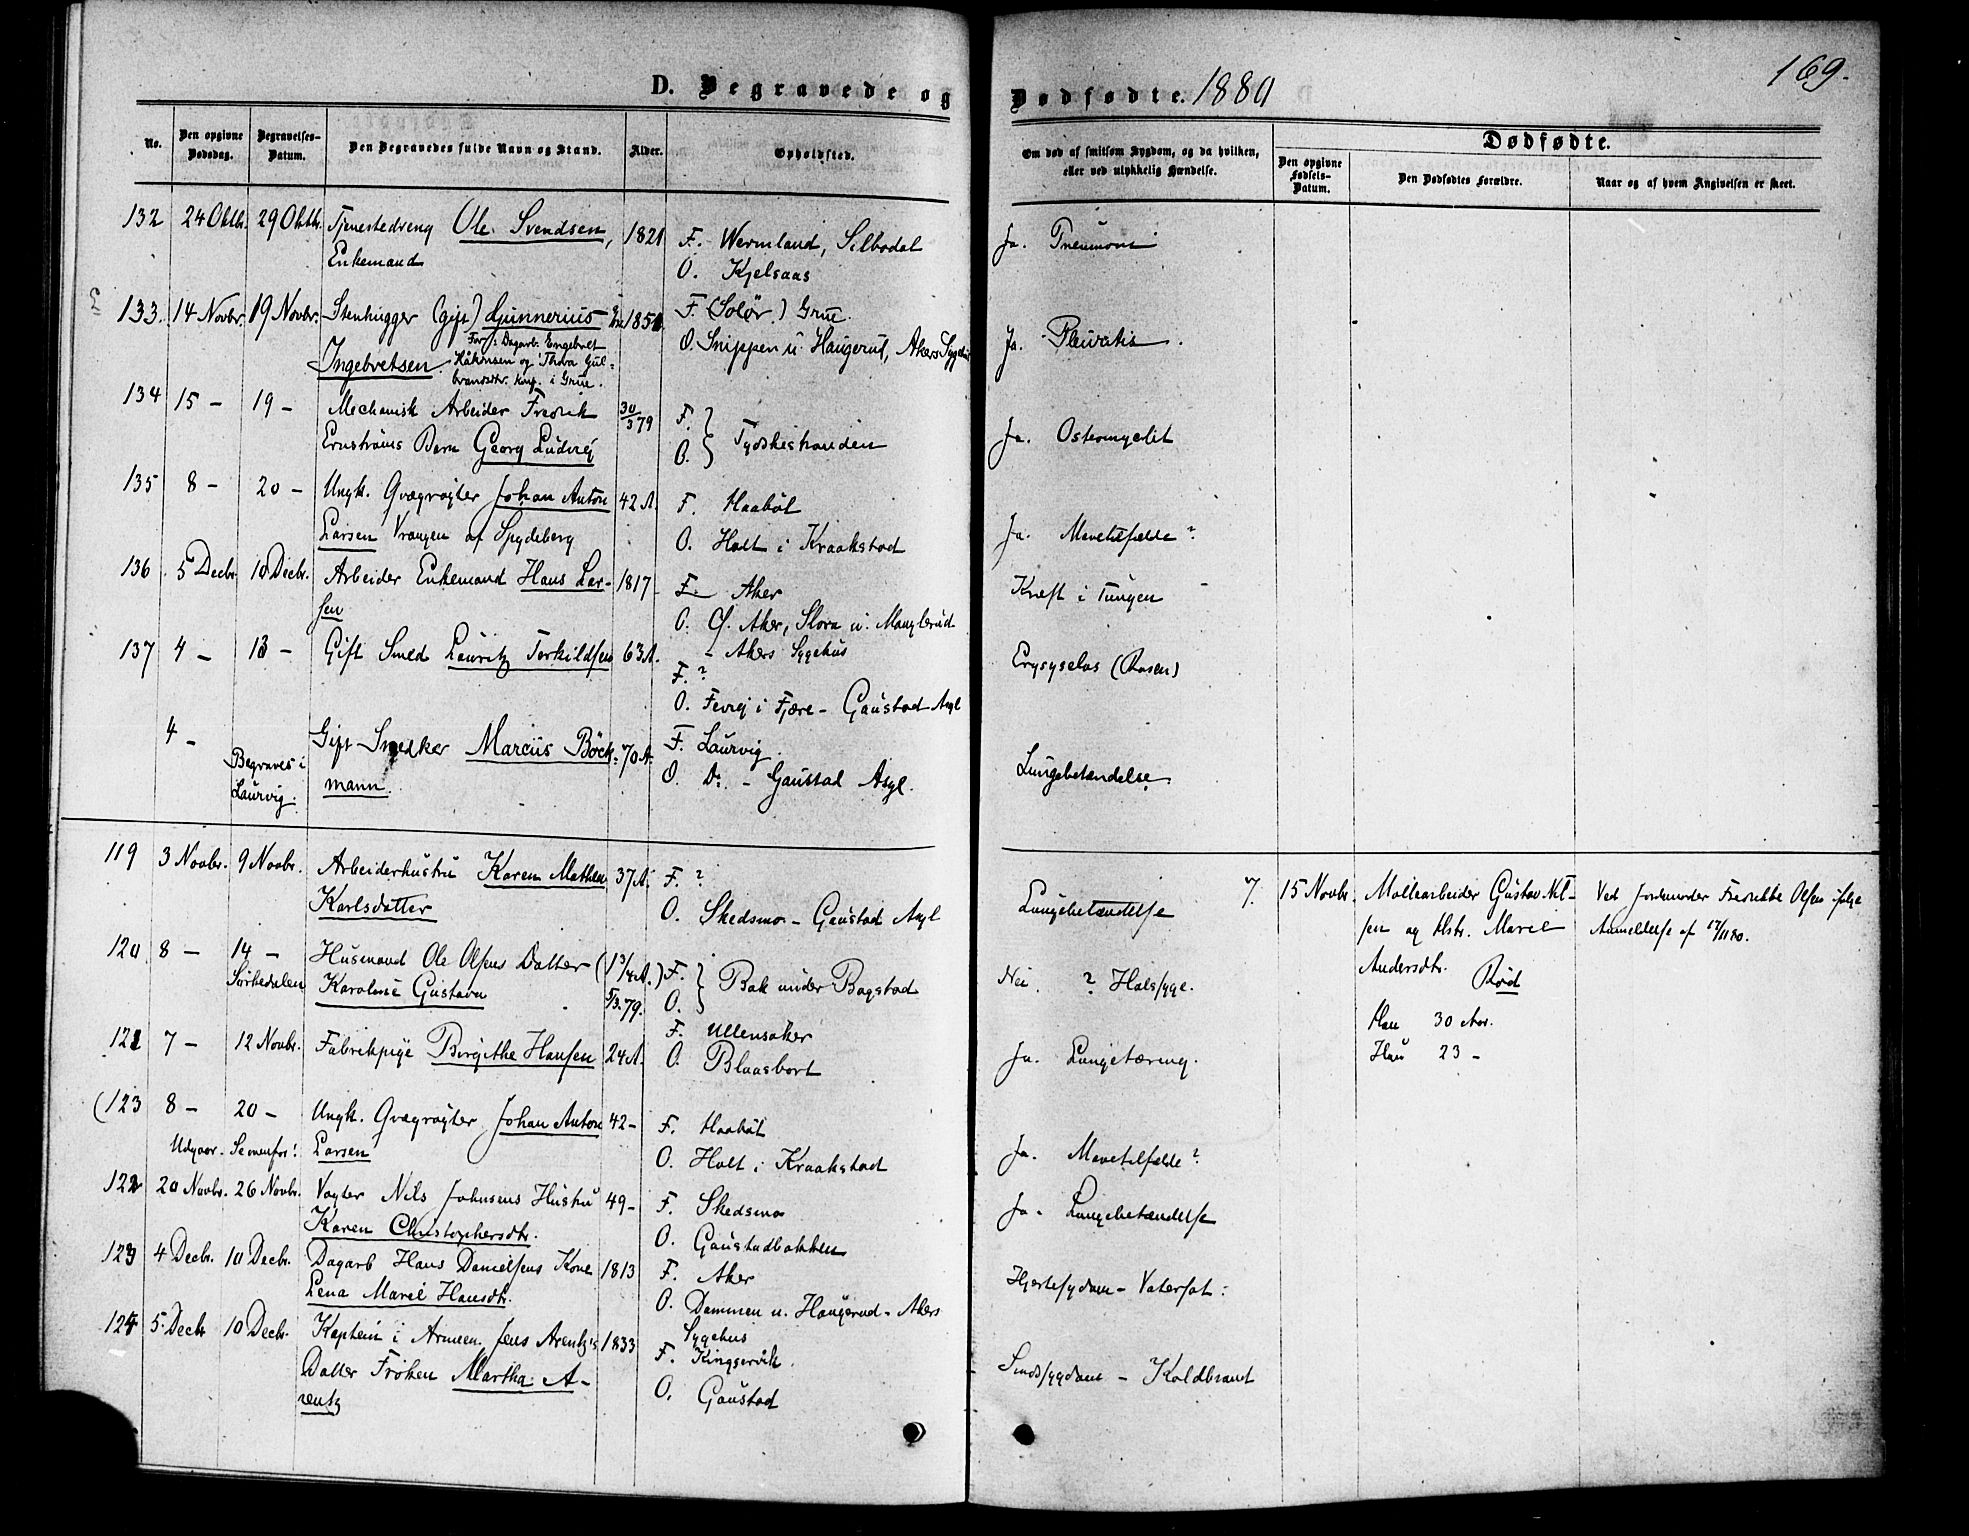 D. Begravede og
Dødfødte. 1880
169.
No.
Den opgivne Dødsdag.
Begravelses-Datum.
Den Begravedes fulde Navn og Stand.
Alder.
Opholdsted.
Om død af smitsom Sygdom, og da hvilken,
eller ved ulykkelig Hændelse.
Dødfødte.
Den opgivne Fødsels-Datum.
Den Dødfødtes Forældre.
Naar og af hvem Angivelsen er skeet.
132 24 Oktbr. 29 Oktbr. Tjenestedreng Ole Svendsen, 1821 F. Wermland, Silbodal Ja. Pneumoni
Enkemand O. Kjelsaas
133. 14 Novbr. 19 Novbr. Stenhugger (gift) Gunnerius 1851. F. (Solør.) Grue. Ja. Pleuritis.
Ingebretsen. O. Snippen u. Haugerud, Akers Sygehus
For: Dagarb. Engebret
Håkonsen og Thora Gul-
brandsdtr. Knp. i Grue.
134 15 - 19 - Mechanisk Arbeider Fredrik 30/3 79 F. Ja. Osteomyelit
Ernströms Barn Georg Ludvig O. Tydskestranden
135 8 - 20 - Ungk. Qvægrøgter Johan Anton 42 A. F. Haabøl
Larsen Vrangen af Spydeberg O. Holt i Kraakstad Ja. Mavetilfælde?
136 5 Decbr. 10 Decbr. Arbeider Enkemand Hans Lar- 1817 F. Aker Kræft i Tungen
sen O. Ø. Aker, Slora u. Manglerud
- Akers Sygehus
137 4 - 13 - Gift Smed Lauritz Torkildsen 63 A. F. ? Erysyselas (Rosen)
O. Fevig i Fjære - Gaustad Asyl
4 - Gift Snedker Marcus Böck- 70 A. F. Laurvig.
Begraves i Laurvig. mann. O. Do. - Gaustad Asyl. Lungebetændelse.
119 3 Novbr. 9 Novbr. Arbeiderhustru Karen Mathea 37 A. F. ?
Karlsdatter O. Skedsmo - Gaustad Asyl Lungebetændelse
7. 15 Novbr. Møllearbeider Gustav Nil-
sen og Hstr. Marie
Andersdtr. Rød
Han 30 Aar.
Hun 23 -
Ved Jordemoder Fredrikke Olsen ifølge
Anmeldelse af 17/11 80.
120 8 - 14 - Husmand Ole Olsens Datter (1 3/4 A.) F.
Sørkedalen Karoline Gustava 5/3 79. O. Bak under Bogstad Nei. ? Halssyge.
121 7 - 12 Novbr. Fabrikpige Birgithe Hansen 24 A. F. Ullensaker
O. Blaasbort Ja. Lungetæring.
(123 8 - 20 - Ungk. Qvægrøgter Johan Anton 42 - F. Haabøl
Udgaar. Se ovenfor! Larsen O. Holt i Kraakstad Ja. Mavetilfælde?
122 20 Novbr. 26 Novbr. Vogter Nils Johnsens Hustru 49 - F. Skedsmo Ja. Lungebetændelse
Karen Christophersdtr. O. Gaustadbakken
123 4 Decbr. 10 Decbr. Dagarb Hans Danielsens Kone 1813 F. Aker Hjertesygdom - Vatersot:
Lena Marie Hansdtr. O. Dammen u. Haugerud - Akers
Sygehus
124 5 Decbr 10 Decbr. Kaptein i Armeen Jens Arentz's 1833 F. Kingservik. Sindssygdom - Koldbrand
Datter Frøken Martha A- O. Gaustad
rentz